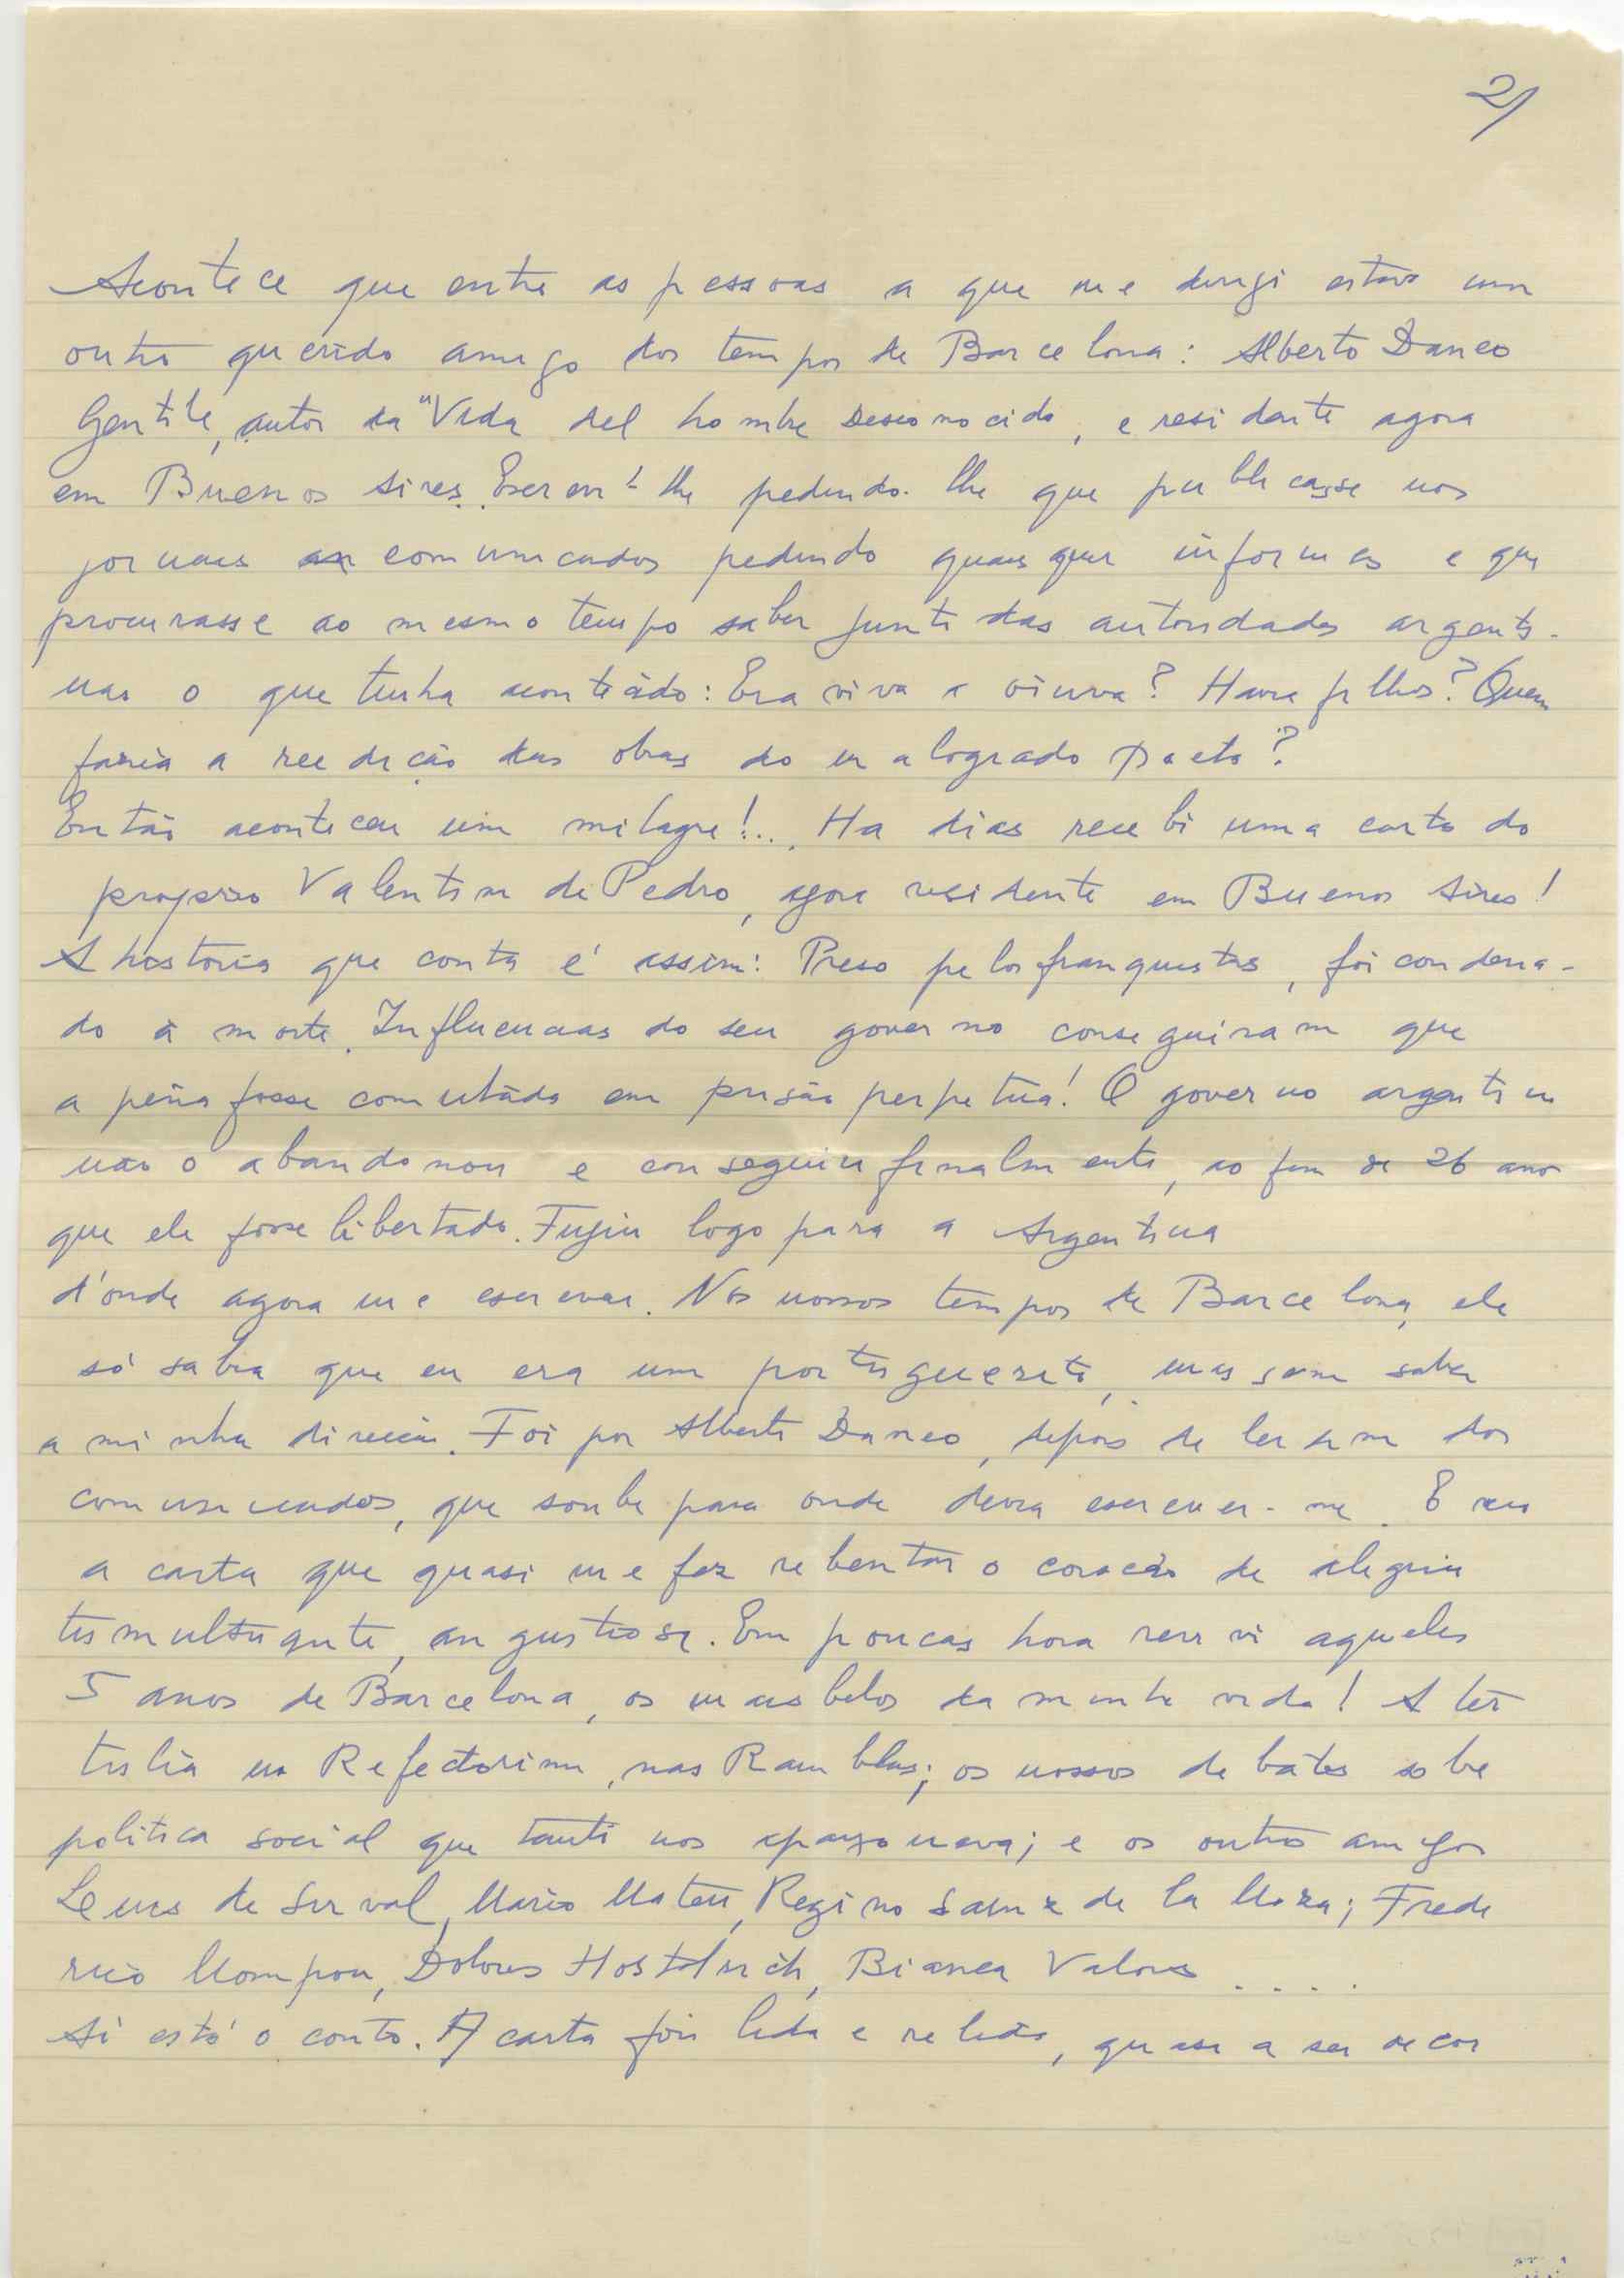 2/
Acontece que entre as pessoas a que me dirigi estava um
outro querido amigo dos tempos de Barcelona: Alberto Daneo
Gentile, autor da "Vida del hombre Desconocido, e residente agora
em Buenos Aires. Escrevi-lhe pedindo-lhe que publicasse nos
jornais comunicados pedindo quaisquer informes e que
procurasse ao mesmo tempo saber junto das autoridades argenti-
nas o que tinha acontecido: Era viva a viuva? Havia filhos? Quem
faria a reedição das obras do malogrado Poeta?
Então aconteceu um milagre!... Ha dias recebi uma carta do
proprio Valentim de Pedro, agora residente em Buenos Aires!
A historia que conta é assim: Preso pelos franquistas, foi condena-
do á morte. Influencias do seu governo conseguiram que
a pena fosse comutada em prisão perpetua! O governo argentino
não o abandonou e conseguiu finalmente, ao fim de 26 anos
que ele fosse libertado. Fugiu logo para a Argentina
d'onde agora me escreveu. Nos nossos tempos de Barcelona, ele
só sabia que eu era um portuguesito, mas sem saber
a minha direcção. Foi por Alberto Daneo, depois de ler um dos
comunicados, que soube para onde devia escrever-me. E veio
a carta que quasi me fez rebentar o coração de alegria
tumultuante, angustiosa. Em poucas hora revivi aqueles
5 anos de Barcelona, os mais belos da minha vida! A ter
tulia no Refectorium, nas Ramblas; os nossos debates sobre
politica social que tanto nos apaixonava; e os outros amigos
Luis de Sirval, Mario Mateu, Regino Sainz de la Maza; Frede
rico Mompou, Dolores Hostalrich, Bianca Valoris .....
Ai está o conto. A carta foi lida e relida, quasi a sei de cor